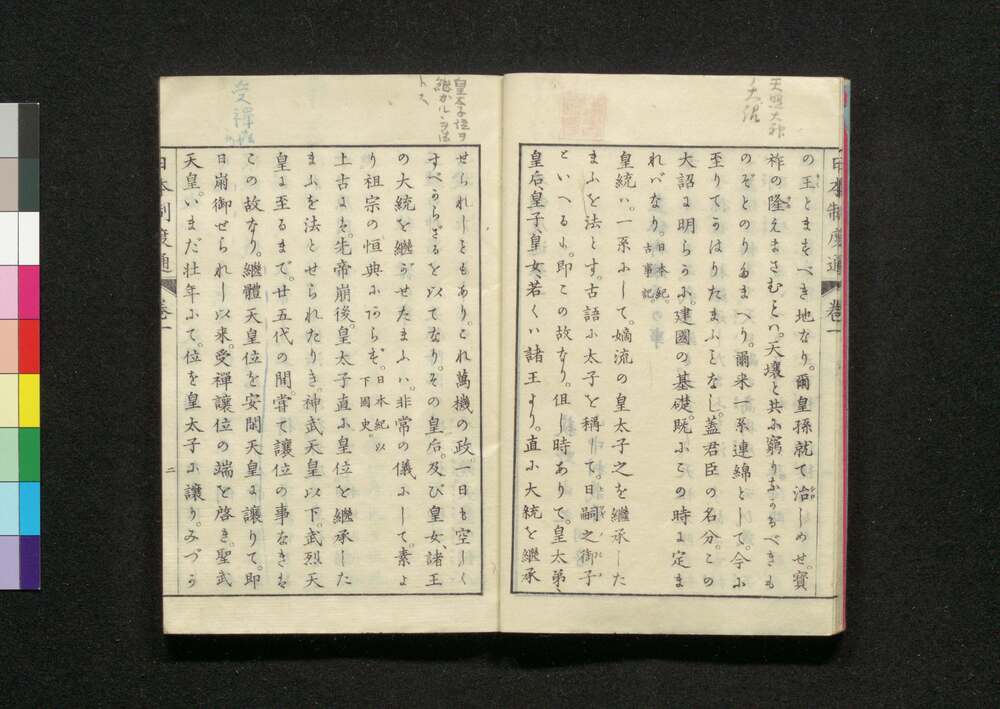 天照大神
大詔
日本制度通 卷一
の王とまをべき地なり。爾皇孫就て治しめせ。寶
祚の隆えまさむとハ。天壤と共に窮りなかるべきも
のぞとのりたまへり。爾來一系連綿として。今に
至りてかはりたまふとなし。蓋君臣の名分。この
大詔に明らかに。建國の基礎。既にこの時に定ま
れバなり。日本紀。古事記。
皇統ハ。一系にして。嫡流の皇太子之を繼承した
まふを法とす。古語に太子を稱して。日嗣之御子
といへるよ。即この故なり。但し時ありて。皇太弟、
皇后、皇子、皇女、若くハ諸王より。直に大統を繼承
皇太子位ヲ
繼カルヽヲ法
トス
せられしともあり。これ萬機の政。一日も空しく
すべからざるを以てなり。その皇后。及び皇女諸王
の大統を繼がせたまふハ。非常の儀にして。素よ
り祖宗の恒典にあらず。日本紀以下國史。
上古にハ。先帝崩後。皇太子直に皇位を繼承した
まふを法とせられたりき。神武天皇以下。武烈天
皇に至るまで。廿五代の間嘗て讓位の事なきは
この故なり。繼體天皇位を安閑天皇に讓りて。即
日崩御せられし以來。受禪讓位の端を啓き。聖武
天皇。いまだ壯年にて。位を皇太子に讓り。みづか
受禪
日本制度通 卷一
二